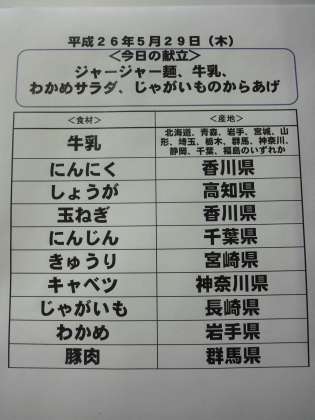 平成26年5月29日(木)
<今日の献立>
ジャージャー麺、牛乳、
わかめサラダ、じゃがいものからあげ
<食材> <産地>
牛乳 北海道、青森、岩手、宮城、山
形、埼玉、栃木、群馬、神奈川、
静岡、千葉、福島のいずれか
にんにく 香川県
しょうが 高知県
玉ねぎ 香川県
にんじん 千葉県
きゅうり 宮崎県
キャベツ 神奈川県
じゃがいも 長崎県
わかめ 岩手県
豚肉 群馬県